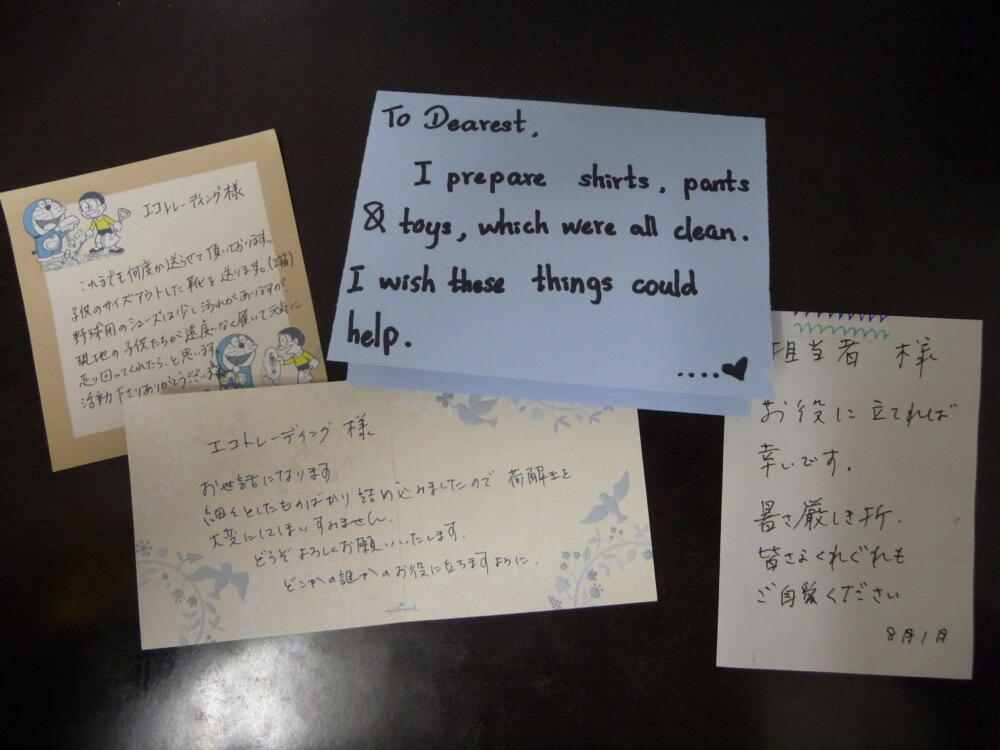 エコトレーディング様
これまでも何度か送らせて頂いております。
子供のサイズアウトした靴を送ります。(2箱)
野球用のシューズは少し汚れがありますが、
現地の子供たちが遠慮なく履いて元気に
走り回ってくれたら、と思います
活動下さりありがとうございます
To Dearest,
I prepare shirts, pants
& toys, which were all clean.
I wish these things could
help.
....♥
エコトレーディング 様
お世話になります
細々としたものばかり詰め込みましたので 荷解きを
大変にしてしまいすみません。
どうぞよろしくお願いいたします。
どこかの誰かのお役に立ちますように.
Hallmark
担当者 様
お役に立てれば
幸いです.
暑さ厳しき折.
皆さまくれぐれも
ご自愛ください
8月1日